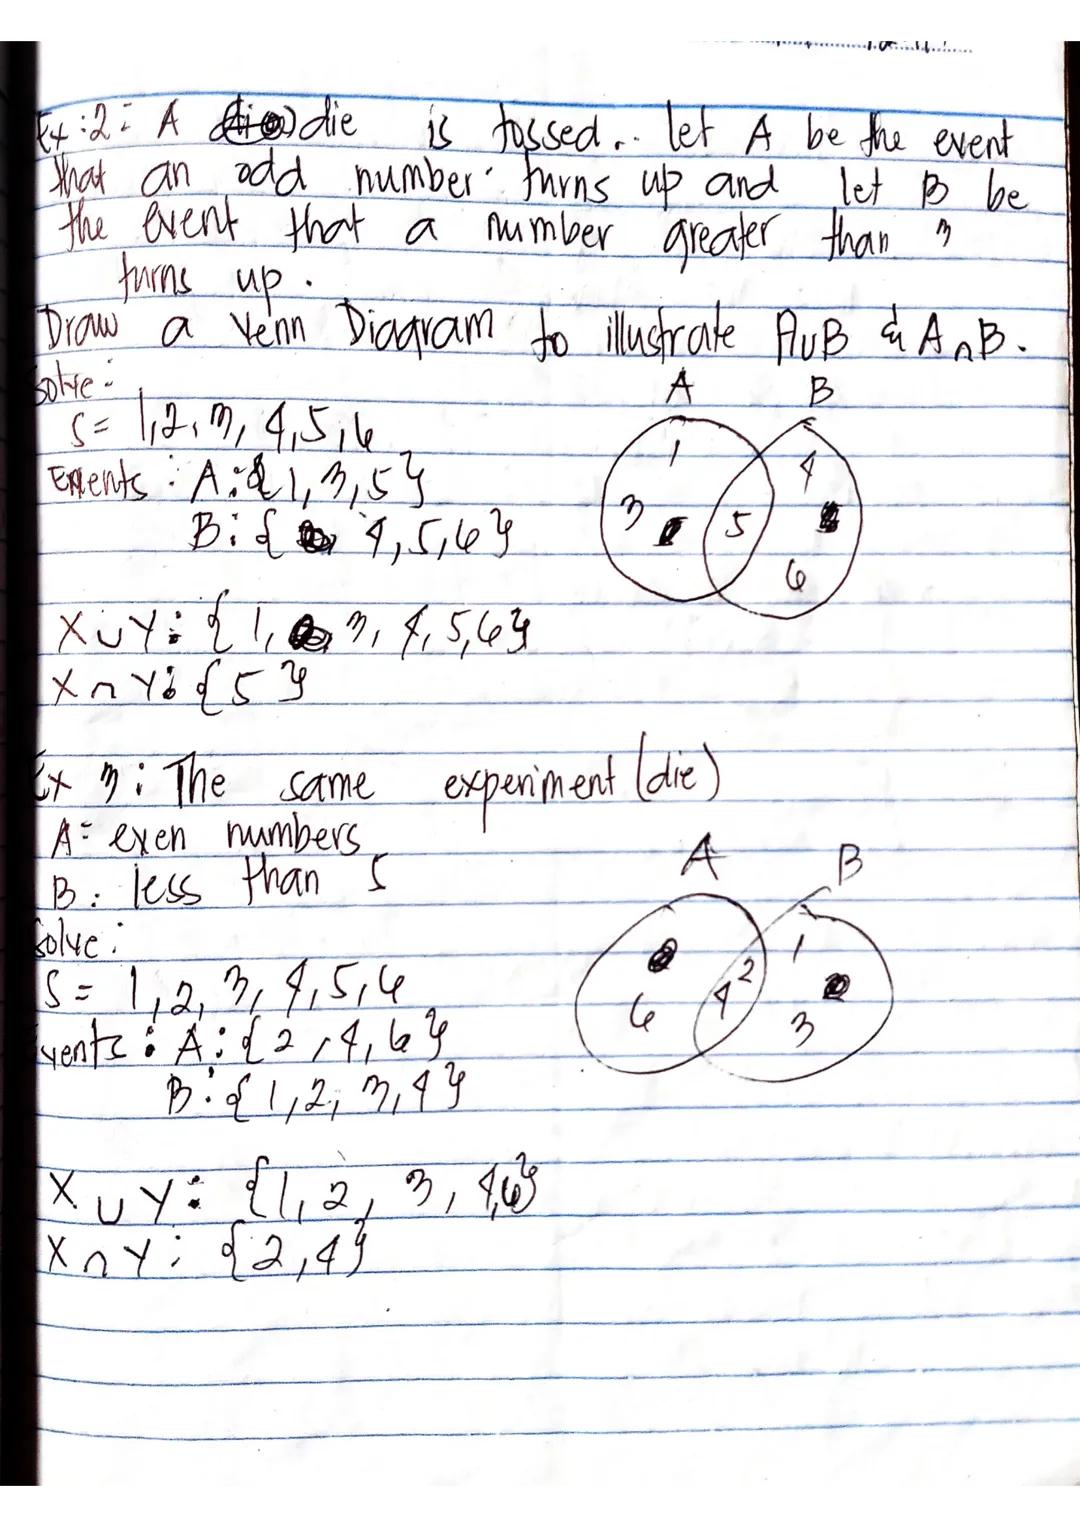 Ex:2: A die is tossed.. let A be the event
that an odd number turns up and let B be
the event that a number greater than 3
turns up.
Draw a Venn Diagram to illustrate A∪B & A∩B.
Solve:
S= 1,2,3,4,5,6
Events: A:{1,3,5}
B:{ 4,5,6}
A B
1 4
3 5
6
X∪Y: {1, 3, 4,5,6}
X∩Y: {5}
Ex 3: The same experiment (die)
A= even numbers
B: less than 5
Solve:
S= 1,2,3,4,5,6
Events: A:{2,4,6}
B:{1,2,3,4}
A B
1
2
6 4 3
X∪Y: {1,2,3,4,6}
X∩Y: {2,4}